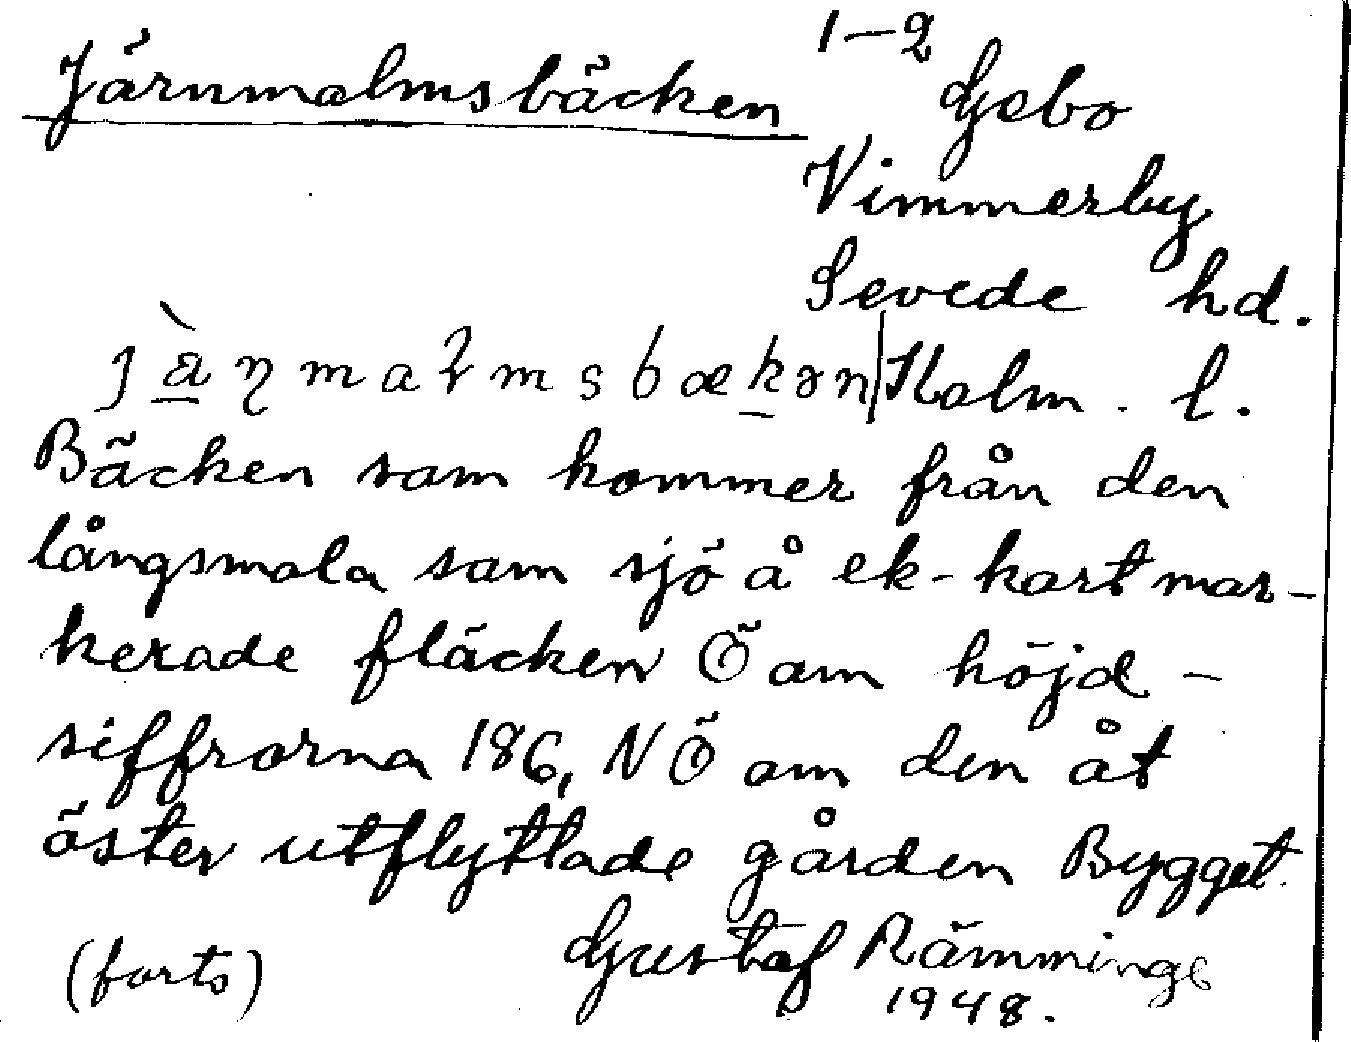 Järnmalmsbäcken 1–2 Gebo
Vimmerby
Sevede hd.
Kalm. l.
Bäcken som kommer från den
långsmala som sjö å ek-kart mar-
kerade fläcken Ö om höjd-
siffrorna 186, NÖ om den åt
öster utflyttade gården Bygget.
(forts) Gustaf Rämminge
1948.